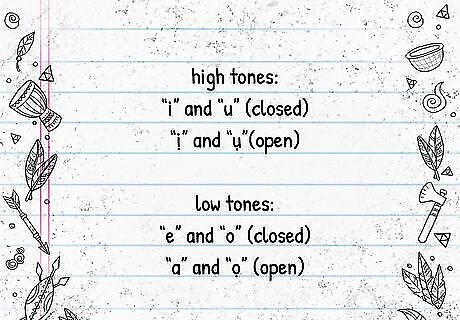 high tones:
“i” and “u” (closed)
“ị” and “ụ”(open)
low tones:
“e” and “o” (closed)
“a” and “ọ” (open)